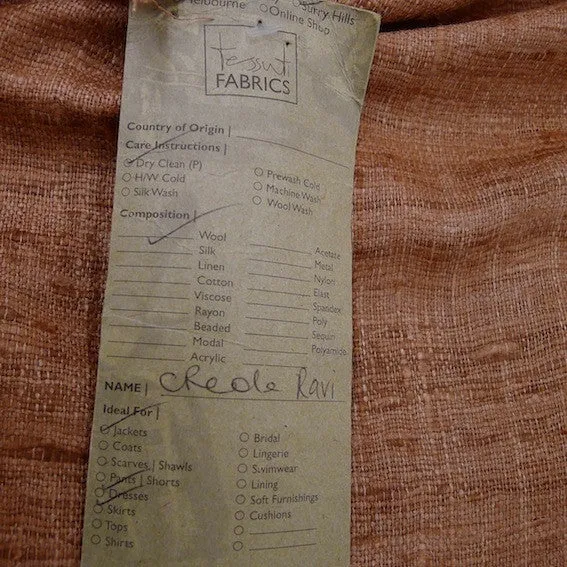 Melbourne Surry Hills
Online Shop
Tessuti
FABRICS
Country of Origin |
Care Instructions |
Dry Clean (P)
H/W Cold
Silk Wash
Prewash Cold
Machine Wash
Wool Wash
Composition |
Wool
Silk
Linen
Cotton
Viscose
Rayon
Beaded
Modal
Acrylic
Acetate
Metal
Nylon
Elast
Spandex
Poly
Sequin
Polyamide
NAME | Creole Ravi
Ideal For |
Jackets
Coats
Scarves | Shawls
Pants | Shorts
Dresses
Skirts
Tops
Shirts
Bridal
Lingerie
Swimwear
Lining
Soft Furnishings
Cushions